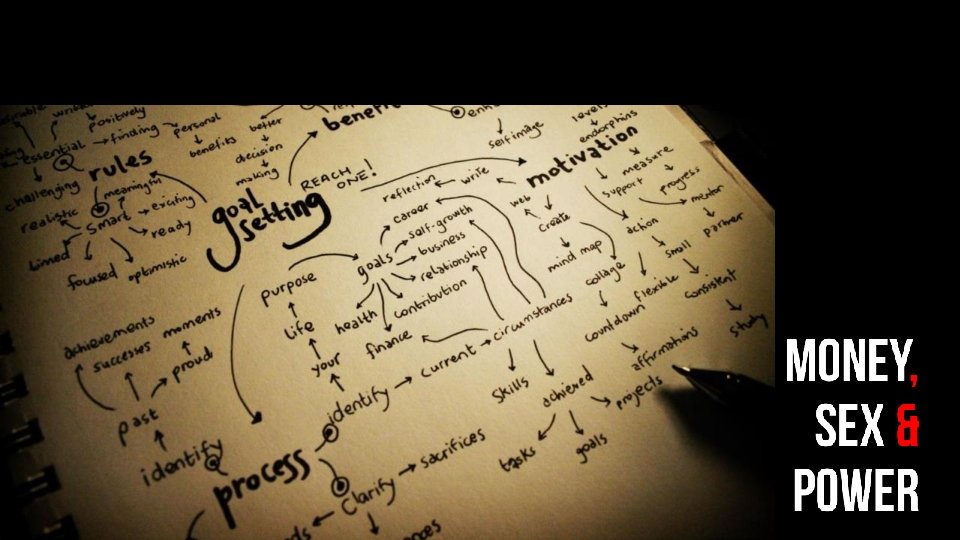 written
positively
essential
finding
personal
benefits
better
decision
making
rules
challenging
meaningful
realistic
smart
exciting
ready
timed
focused
optimistic
goal
setting
REACH
ONE!
self image
levels
endorphins
motivation
measure
progress
support
mentor
action
partner
small
flexible
consistent
study
reflection
write
web
create
mind map
collage
countdown
affirmations
career
self-growth
business
relationship
goals
contribution
health
finance
purpose
life
your
identify
current
circumstances
skills
achieved
projects
tasks
goals
achievements
successes
moments
proud
past
identify
process
Clarify
sacrifices
MONEY,
SEX &
POWER